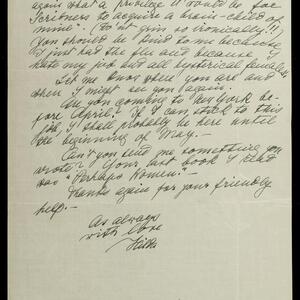 again what a privilege it would be for
Scribners to acquire a brain-child of
mine". (Don't grin so ironically!!!
You should be kind to me because
I just had the flu and because I
hate my job and all hysterical females.
Let me know where you are and
when I might see you again.
Are you going to New York be-
fore April? If I can stick to this
job, I shall probably be here until
the beginning of May. –
Can't you send me something you
wrote? Your last book I read
was "Perhaps Women." –
Thanks again for your friendly
help. –
As always
with love